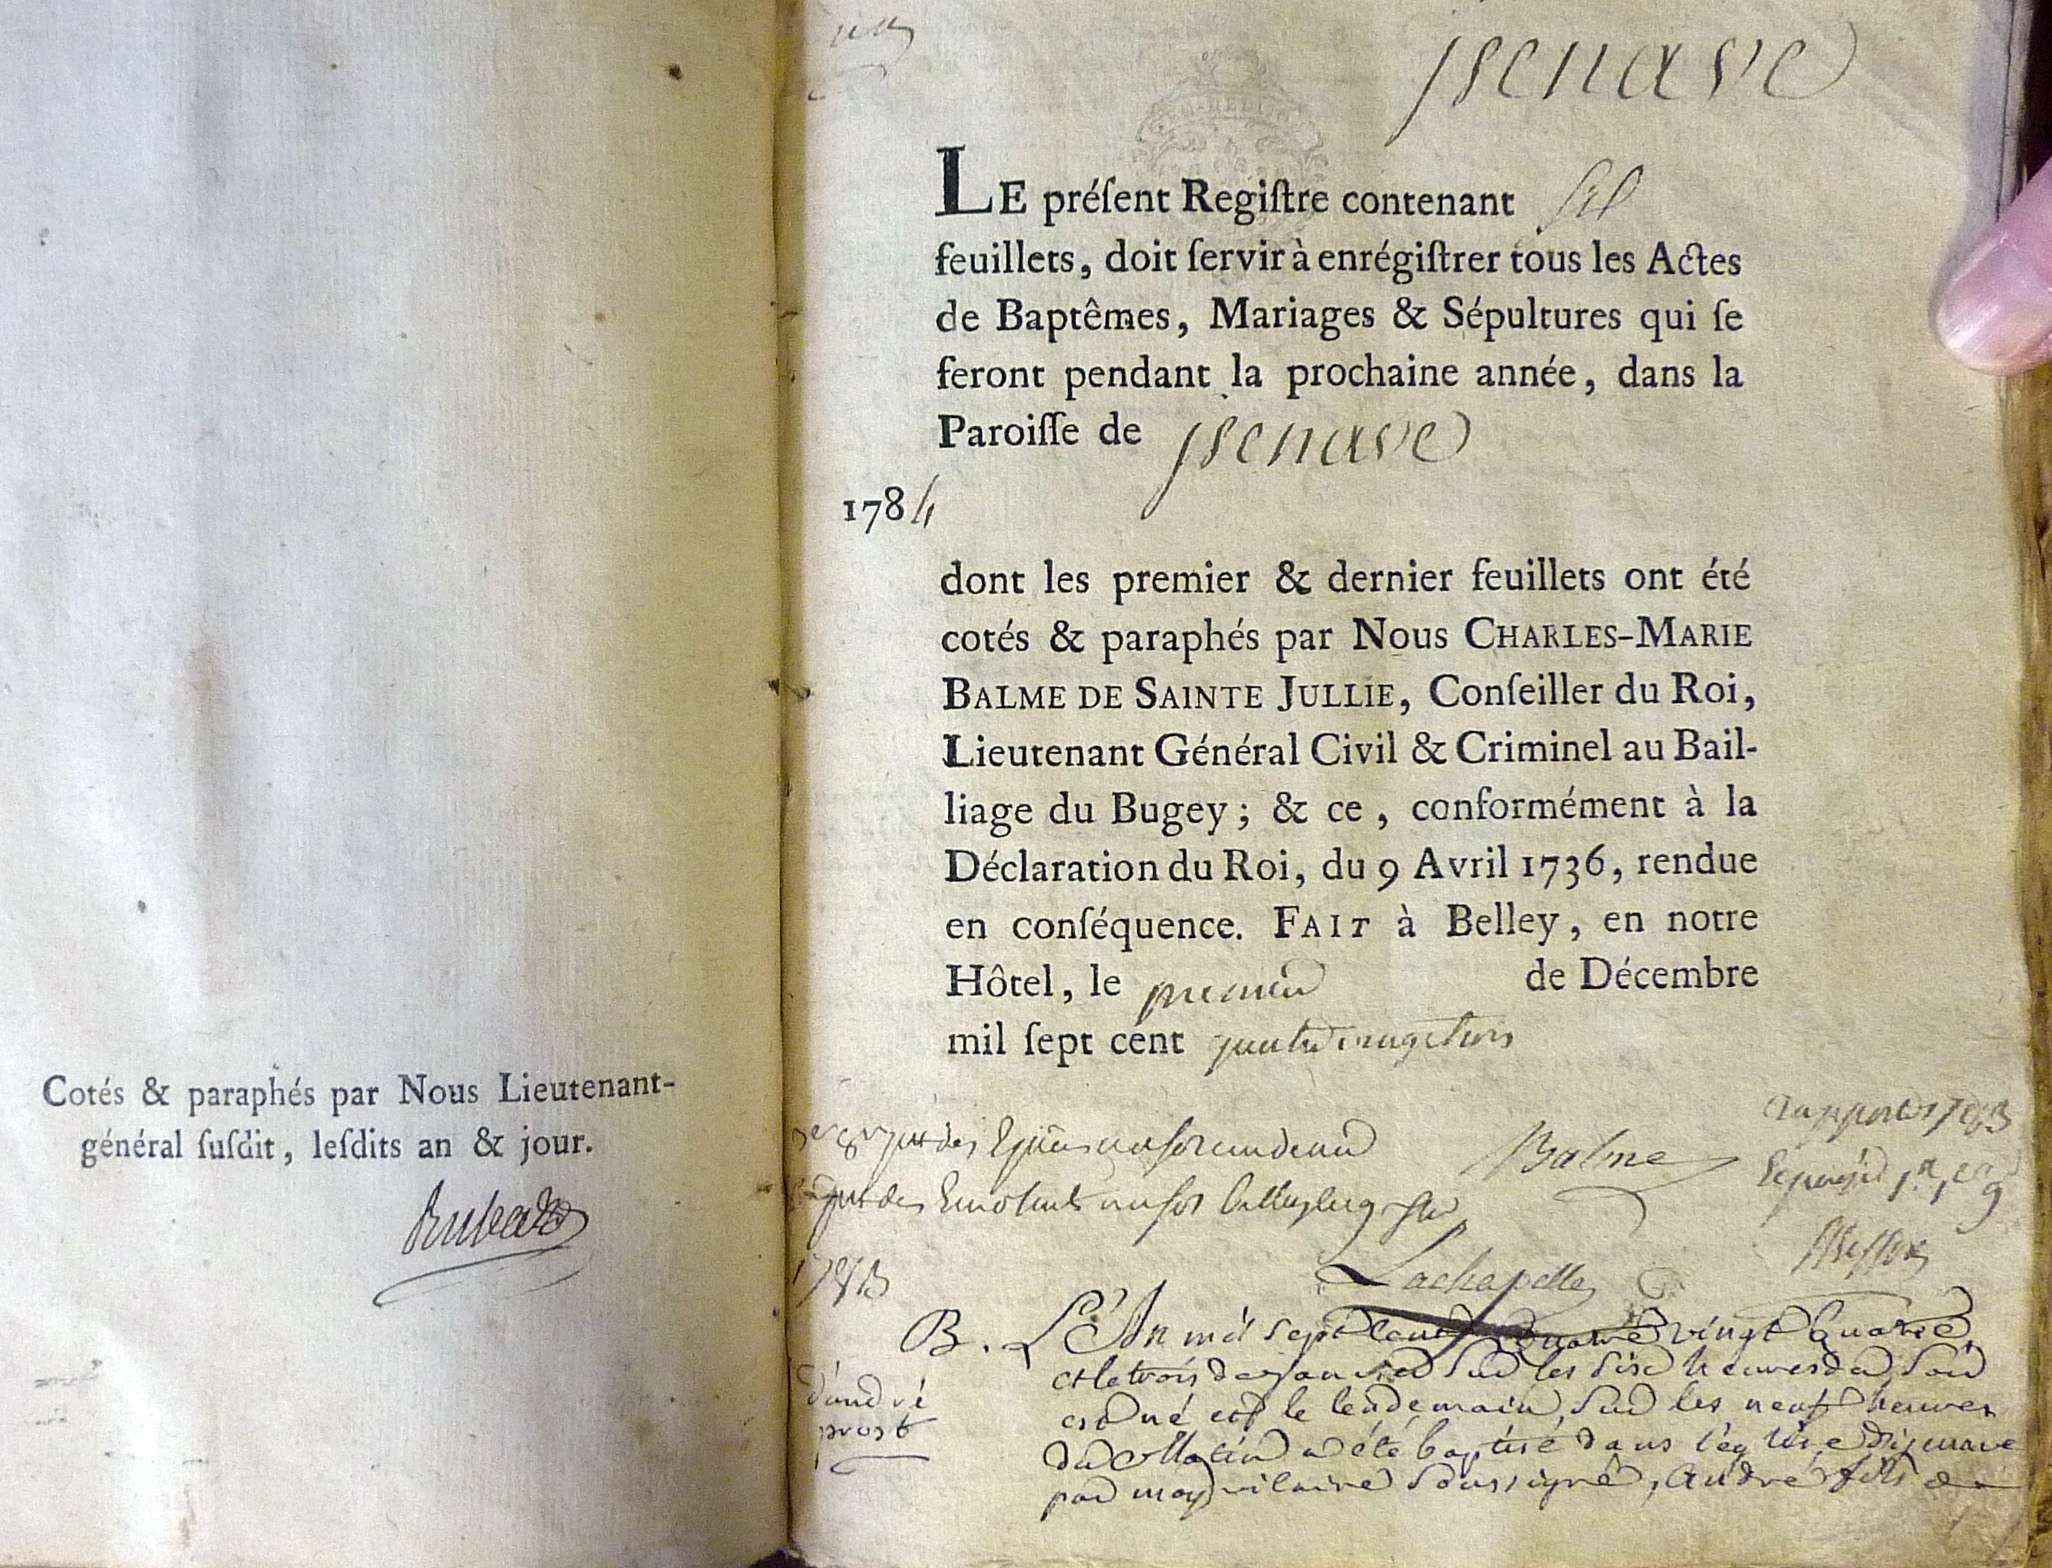 Cotés & paraphés par Nous Lieutenant-
général ſuſdit, leſdits an & jour.
Jsenave
LE préſent Regiſtre contenant
feuillets, doit ſervir à enrégiſtrer tous les Actes
de Baptêmes, Mariages & Sépultures qui ſe
feront pendant la prochaine année, dans la
Paroiſſe de Jsenave
1784
dont les premier & dernier feuillets ont été
cotés & paraphés par Nous CHARLES-MARIE
BALME DE SAINTE JULLIE, Conſeiller du Roi,
Lieutenant Général Civil & Criminel au Bail-
liage du Bugey; & ce, conformément à la
Déclaration du Roi, du 9 Avril 1736, rendue
en conſéquence. FAIT à Belley, en notre
Hôtel, le premier de Décembre
mil ſept cent quatre vingt trois
Balme
1783
Lachapelle
B. L'An mil sept cent quatre vingt quatre,
et le trois de janvier sur les six heures du soir
est né et le lendemain, sur les neuf heures
du matin a été baptisé dans l'église d'jzenave
par moy vicaire soussigné, andré fils de
d'andré
prost